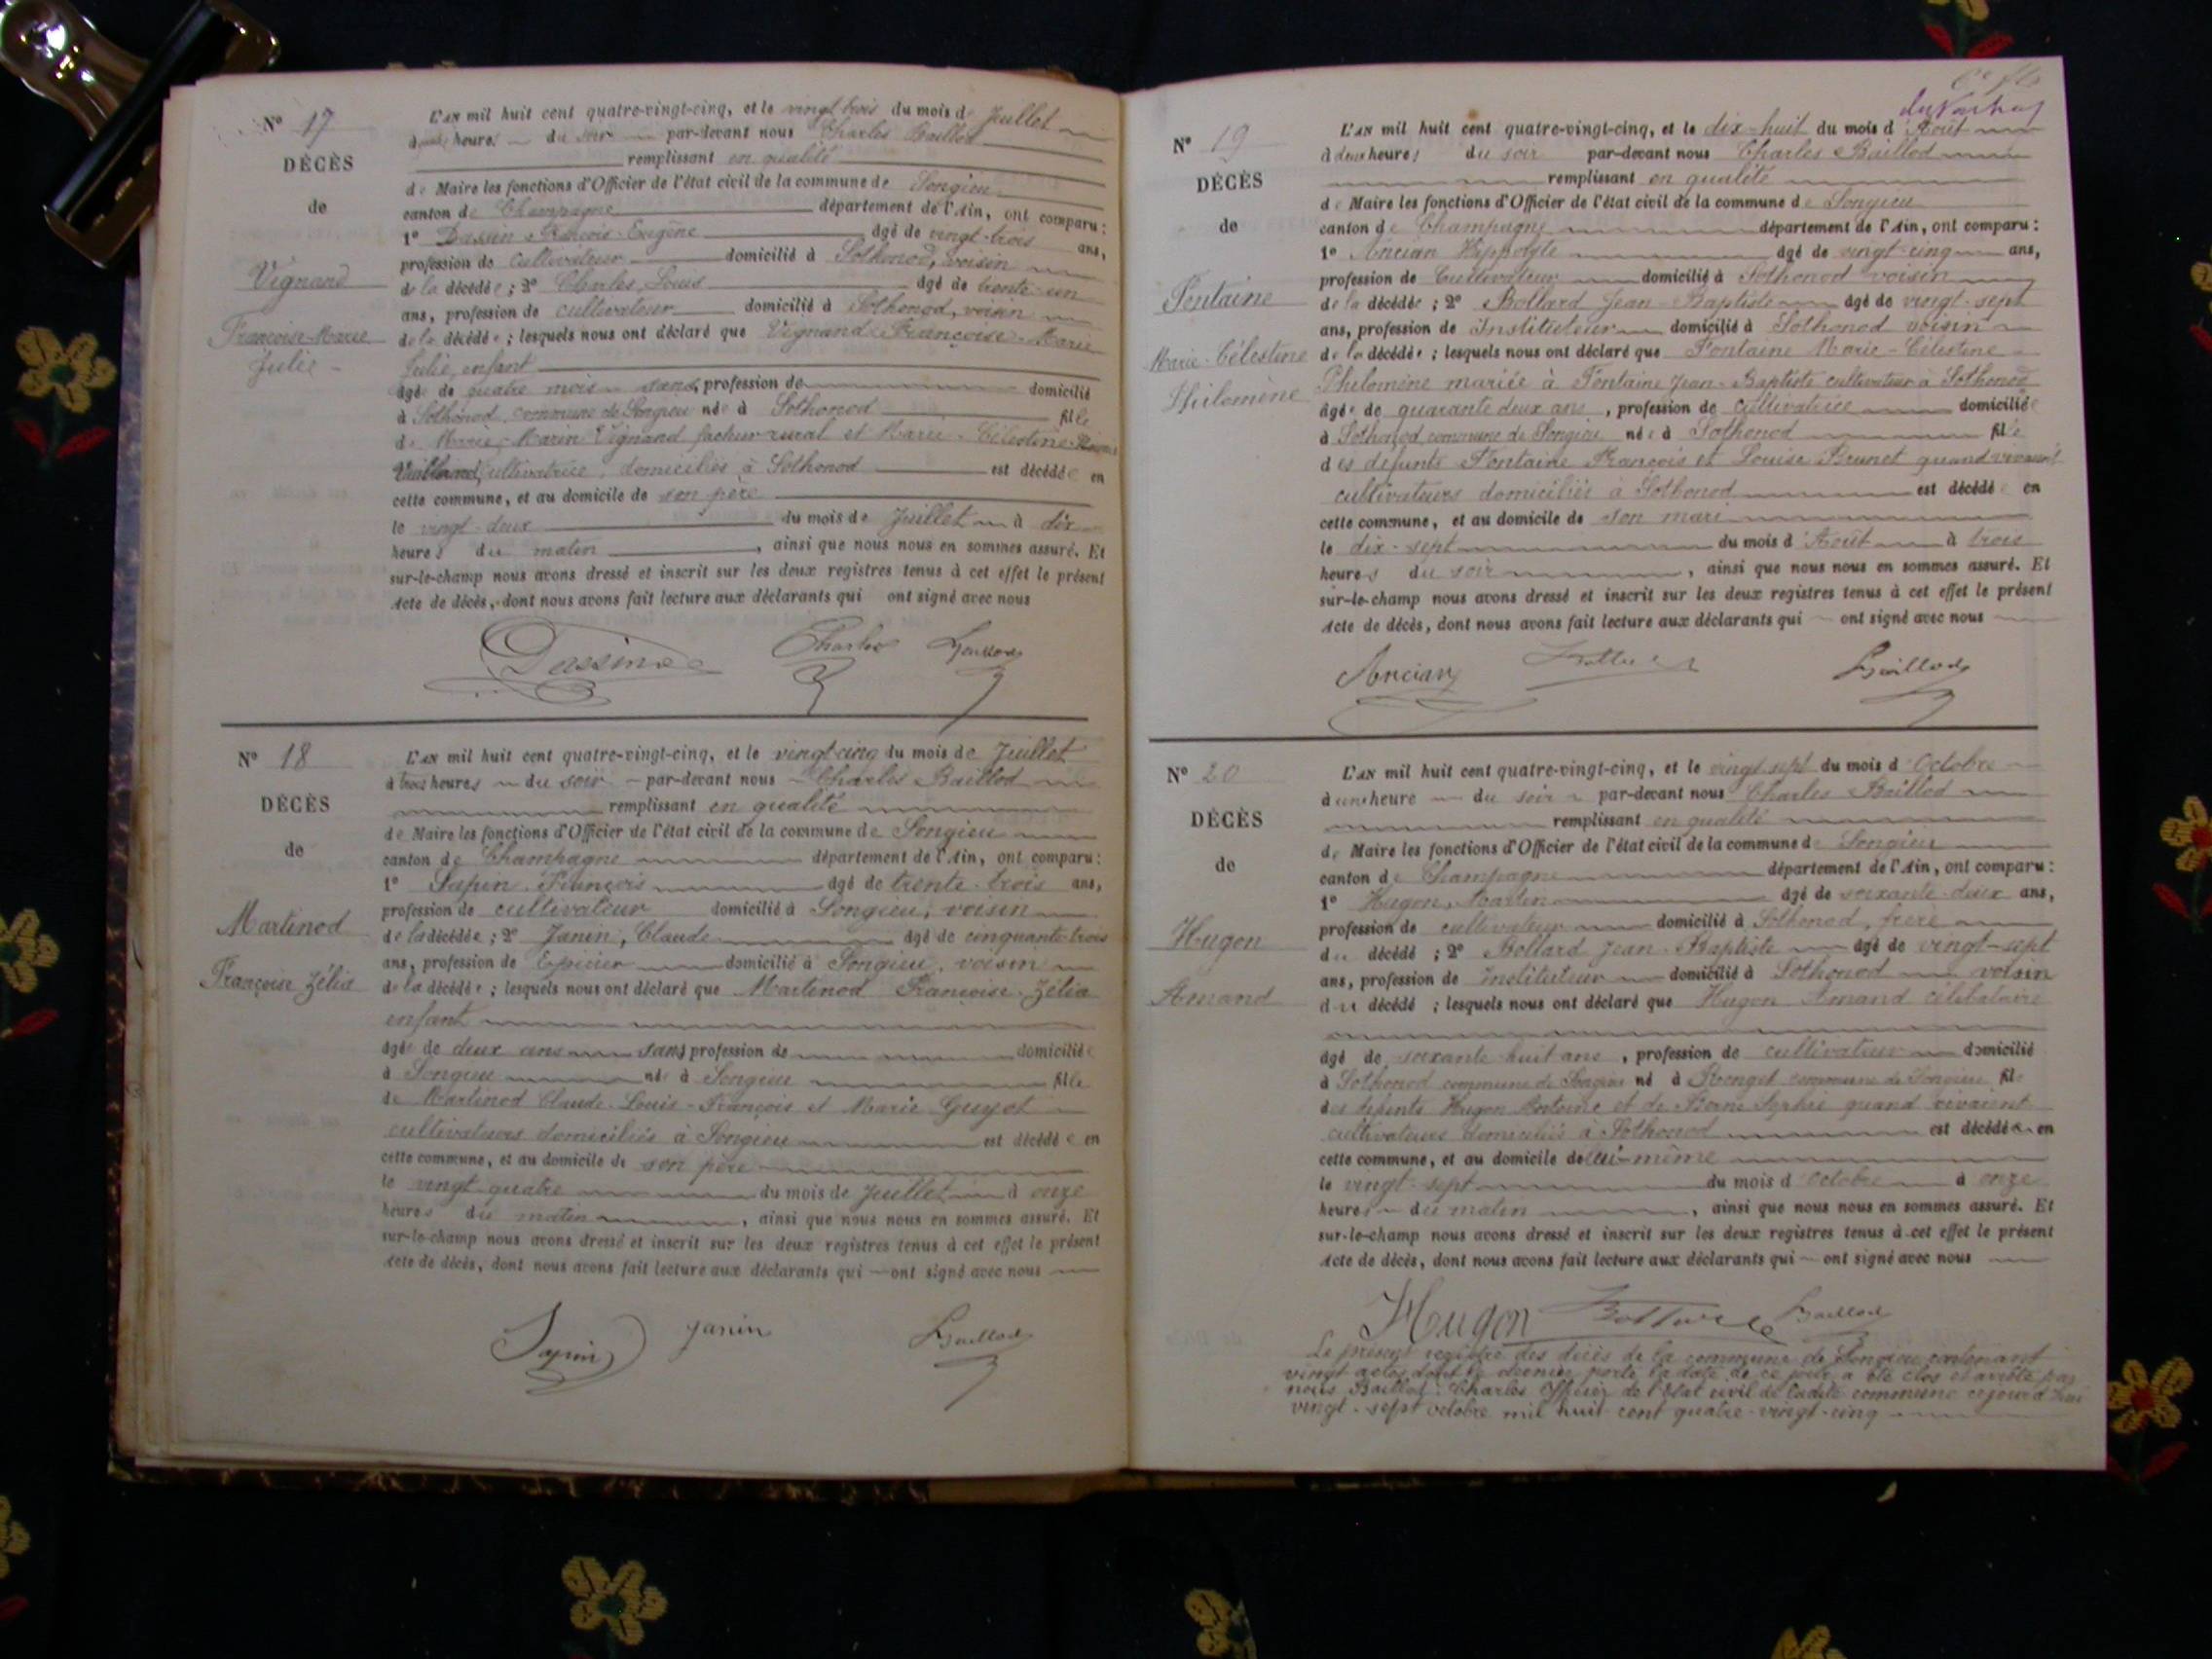 N° 17
DÉCÈS
de
Vignand
Françoise-Marie
Julie
L'an mil huit cent quatre-vingt-cinq, et le vingt trois du mois de Juillet
heures du soir par-devant nous Charles Baillod
remplissant en qualité
de Maire les fonctions d'Officier de l'état civil de la commune de Songieu
canton de Champagne département de l'Ain, ont comparu :
1° Dassin François-Eugène âgé de vingt-trois ans,
profession de cultivateur domicilié à Sothonod, voisin
de la décédée ; 2° Charles, Louis âgé de trente-un
ans, profession de cultivateur domicilié à Sothonod, voisin
de la décédée ; lesquels nous ont déclaré que Vignand Françoise-Marie
Julie, enfant
âgée de quatre mois sans profession de domicilié
à Sothonod commune de Songieu née à Sothonod fille
de Marie-Marin Vignand facteur rural et Marie-Célestine
cultivatrice, domiciliés à Sothonod est décédée en
cette commune, et au domicile de son père
le vingt-deux du mois de Juillet à dix
heures du matin, ainsi que nous nous en sommes assuré. Et
sur-le-champ nous avons dressé et inscrit sur les deux registres tenus à cet effet le présent
Acte de décès, dont nous avons fait lecture aux déclarants qui ont signé avec nous
Dassin Charles Baillod
N° 18
DÉCÈS
de
Martinod
Françoise Zélia
L'an mil huit cent quatre-vingt-cinq, et le vingt-cinq du mois de Juillet
à trois heures du soir par-devant nous Charles Baillod
remplissant en qualité
de Maire les fonctions d'Officier de l'état civil de la commune de Songieu
canton de Champagne département de l'Ain, ont comparu :
1° Sapin, François âgé de trente-trois ans,
profession de cultivateur domicilié à Songieu, voisin
de la décédée ; 2° Janin, Claude âgé de cinquante-trois
ans, profession de Epicier domicilié à Songieu, voisin
de la décédée ; lesquels nous ont déclaré que Martinod Françoise-Zélia
enfant
âgée de deux ans sans profession de domiciliée
à Songieu née à Songieu fille
de Martinod Claude-Louis-François et Marie Guyot
cultivateurs domiciliés à Songieu est décédée en
cette commune, et au domicile de son père
le vingt-quatre du mois de Juillet à onze
heures du matin, ainsi que nous nous en sommes assuré. Et
sur-le-champ nous avons dressé et inscrit sur les deux registres tenus à cet effet le présent
Acte de décès, dont nous avons fait lecture aux déclarants qui ont signé avec nous
Sapin Janin Baillod
N° 19
DÉCÈS
de
Fontaine
Marie-Célestine
Philomène
L'an mil huit cent quatre-vingt-cinq, et le dix-huit du mois d'Août
à deux heures du soir par-devant nous Charles Baillod
remplissant en qualité
de Maire les fonctions d'Officier de l'état civil de la commune de Songieu
canton de Champagne département de l'Ain, ont comparu :
1° Ancian Hippolyte âgé de vingt-cinq ans,
profession de Cultivateur domicilié à Sothonod voisin
de la décédée ; 2° Bollard Jean-Baptiste âgé de vingt-sept
ans, profession de Instituteur domicilié à Sothonod voisin
de la décédée ; lesquels nous ont déclaré que Fontaine Marie-Célestine
Philomène mariée à Fontaine Jean-Baptiste cultivateur à Sothonod
âgée de quarante deux ans, profession de cultivatrice domiciliée
à Sothonod commune de Songieu née à Sothonod fille
des defunts Fontaine François et Louise Brunet quand vivaient
cultivateurs domiciliés à Sothonod est décédée en
cette commune, et au domicile de son mari
le dix-sept du mois d'Août à trois
heures du soir, ainsi que nous nous en sommes assuré. Et
sur-le-champ nous avons dressé et inscrit sur les deux registres tenus à cet effet le présent
Acte de décès, dont nous avons fait lecture aux déclarants qui ont signé avec nous
Ancian Baillod
N° 20
DÉCÈS
de
Hugon
Amand
L'an mil huit cent quatre-vingt-cinq, et le vingt sept du mois d'Octobre
à une heure du soir par-devant nous Charles Baillod
remplissant en qualité
de Maire les fonctions d'Officier de l'état civil de la commune de Songieu
canton de Champagne département de l'Ain, ont comparu :
1° Hugon, Martin âgé de soixante-deux ans,
profession de cultivateur domicilié à Sothonod, frère
du décédé ; 2° Bollard Jean-Baptiste âgé de vingt-sept
ans, profession de Instituteur domicilié à Sothonod voisin
du décédé ; lesquels nous ont déclaré que Hugon Amand célibataire
âgé de soixante huit ans, profession de cultivateur domicilié
à Sothonod commune de Songieu né à commune de Songieu fils
des defunts Hugon Antoine et de Sophie quand vivaient
cultivateurs domiciliés à Sothonod est décédé en
cette commune, et au domicile de lui-même
le vingt-sept du mois d'Octobre à onze
heures du matin, ainsi que nous nous en sommes assuré. Et
sur-le-champ nous avons dressé et inscrit sur les deux registres tenus à cet effet le présent
Acte de décès, dont nous avons fait lecture aux déclarants qui ont signé avec nous
Hugon Baillod
Le présent registre des décès de la commune de Songieu contenant
vingt actes dont le dernier porte la date de ce jour a été clos et arrêté par
nous Baillod Charles Officier de l'état civil de ladite commune cejourd'hui
vingt-sept octobre mil huit cent quatre-vingt-cinq